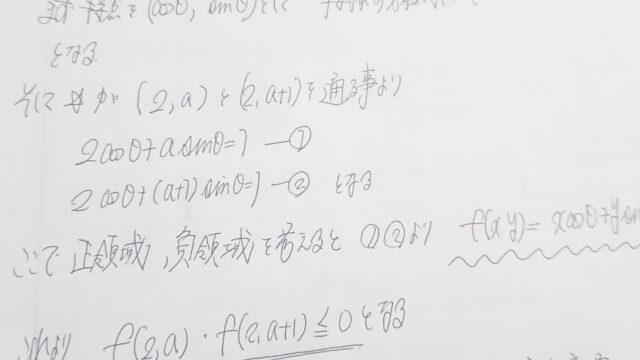 接点を(cosθ, sinθ)とし
となる
が (2,a)と(2,a+1)を通る事より
2cosθ+a sinθ=1 —①
2cosθ+(a+1)sinθ=1 —② となる
ここで 正領域, 負領域を考えると ①②より f(x y)= xcosθ+y sin
これより f(2,a)・f(2,a+1)≦0となる